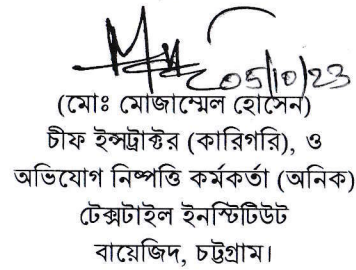 05/10/23
(মোঃ মোজাম্মেল হোসেন)
চীফ ইন্সট্রাক্টর (কারিগরি), ও
অভিযোগ নিষ্পত্তি কর্মকর্তা (অনিক)
টেক্সটাইল ইনস্টিটিউট
বায়েজিদ, চট্টগ্রাম।